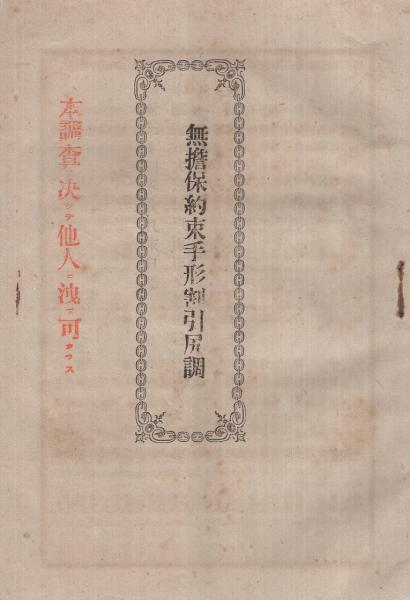 無擔保約束手形割引尻調
本調査ハ決シテ他人ニ洩ス可カラス